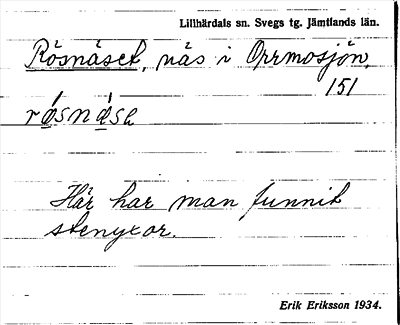 Lillhärdals sn. Svegs tg. Jämtlands län.
Rösnäset, näs i Orrmosjön.
151
Här har man funnit
stenyxor.
Erik Eriksson 1934.